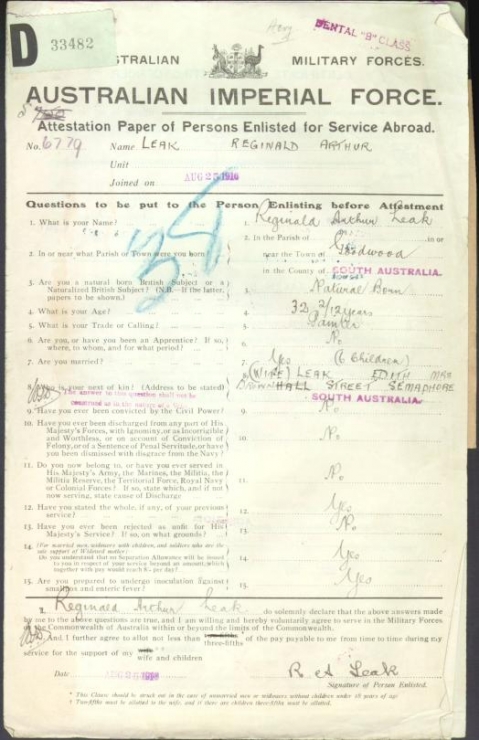 DENTAL "B" CLASS
D 33482
AUSTRALIAN MILITARY FORCES.
AUSTRALIAN IMPERIAL FORCE.
Attestation Paper of Persons Enlisted for Service Abroad.
No. 6779 Name LEAK REGINALD ARTHUR
Unit
Joined on AUG 25 1916
Questions to be put to the Person Enlisting before Attestment
1. What is your Name? 1. Reginald Arthur Leak
2. In or near what Parish or Town were you born? 2. In the Parish of in or
near the Town of Goodwood
in the County of SOUTH AUSTRALIA.
3. Are you a natural born British Subject or a
Naturalized British Subject? (N.B.—If the latter,
papers to be shown.) 3. Natural Born
4. What is your Age? 4. 32 2/12 years
5. What is your Trade or Calling? 5. Painter
6. Are you, or have you been an Apprentice? If so,
where, to whom, and for what period? 6. No
7. Are you married? 7. Yes (6 Children)
who is your next of kin? (Address to be stated) (WIFE) LEAK EDITH MRS
HALL STREET SEMAPHORE
SOUTH AUSTRALIA.
9. Have you ever been convicted by the Civil Power? 9. No
10. Have you ever been discharged from any part of His
Majesty's Forces, with Ignominy, or as Incorrigible
and Worthless, or on account of Conviction of
Felony, or of a Sentence of Penal Servitude, or have
you been dismissed with disgrace from the Navy? 10. No
11. Do you now belong to, or have you ever served in
His Majesty's Army, the Marines, the Militia, the
Militia Reserve, the Territorial Force, Royal Navy
or Colonial Forces? If so, state which, and if not
now serving, state cause of Discharge 11. No
12. Have you stated the whole, if any, of your previous
service? 12. Yes
13. Have you ever been rejected as unfit for His
Majesty's Service? If so, on what grounds? 13. No
14. (For married men, widowers with children, and soldiers who are the
sole support of Widowed mother)
Do you understand that no Separation Allowance will be issued
to you in respect of your service beyond an amount which
together with pay would reach 8/- per day? 14. Yes
15. Are you prepared to undergo inoculation against
smallpox and enteric fever? 15. Yes
I, Reginald Arthur Leak do solemnly declare that the above answers made
by me to the above questions are true, and I am willing and hereby voluntarily agree to serve in the Military Forces
of the Commonwealth of Australia within or beyond the limits of the Commonwealth.
And I further agree to allot not less than three-fifths of the pay payable to me from time to time during my
service for the support of my wife and children
Date AUG 25 1916 R A Leak
Signature of Person Enlisted.
* This Clause should be struck out in the case of unmarried men or widowers without children under 18 years of age.
† Two-fifths must be allotted to the wife, and if there are children three-fifths must be allotted.